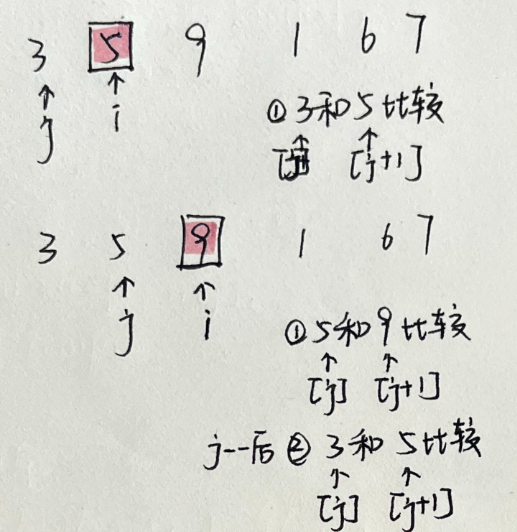 3 5 9 1 6 7
↑ ↑
j i
①3和5比较
↑ ↑
[j] [j+1]
3 5 9 1 6 7
↑ ↑
j i
①5和9比较
↑ ↑
[j] [j+1]
j--后 ② 3和5比较
↑ ↑
[j] [j+1]